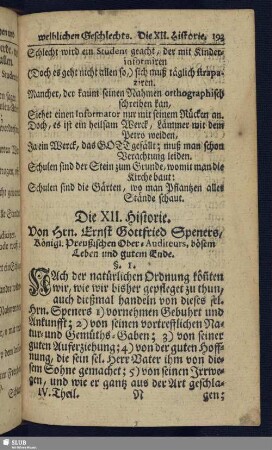 weiblichen Geschlechts. Die XII. Historie. 193
Schlecht wird ein Student geacht, der mit Kinder
informiren
(Doch es geht nicht allen so,) sich muß täglich strapa-
ziren.
Mancher, der kaum seinen Nahmen orthographisch
schreiben kan,
Siehet einen Informator nur mit seinem Rücken an.
Doch, es ist ein heilsam Werck, Lämmer mit dem
Petro weiden,
Ja ein Werck, das GOTT gefällt; muß man schon
Verachtung leiden.
Schulen sind der Stein zum Grunde, womit man die
Kirche baut:
Schulen sind die Gärten, wo man Pflantzen aller
Stände schaut.
Die XII. Historie.
Von Hrn. Ernst Gottfried Speners,
Königl. Preußischen Ober-Auditeurs, bösem
Leben und gutem Ende.
§. 1.
Nach der natürlichen Ordnung könten
wir, wie wir bisher gepfleget zu thun,
auch dießmal handeln von dieses sel.
Hrn. Speners 1) vornehmen Gebuhrt und
Ankunfft; 2) von seinen vortrefflichen Na-
tur und Gemüths-Gaben; 3) von seiner
guten Auferziehung; 4) von der guten Hoff-
nung, die sein sel. Herr Vater ihm von die-
sem Sohne gemachet; 5) von seinen Irrwe-
gen, und wie er gantz aus der Art geschla-
IV. Theil. N gen;
SLUB